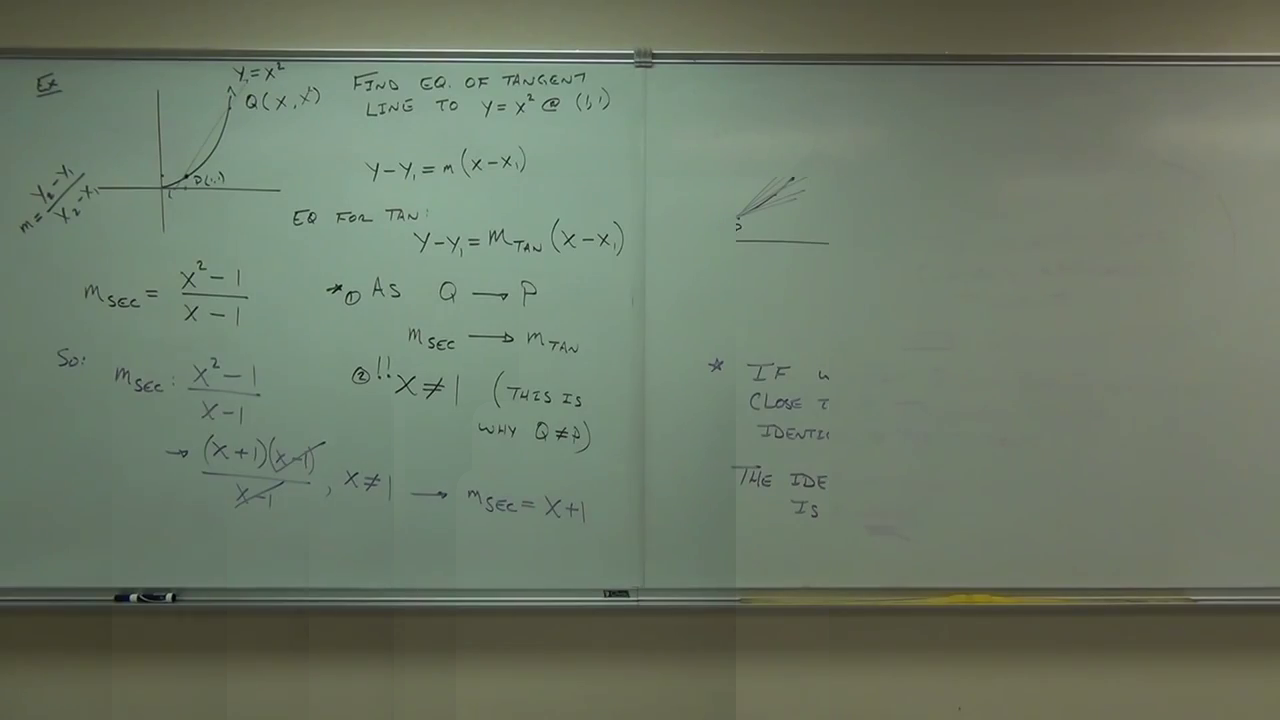 Ex
Y=X²
Q(X, X²)
P(1,1)
1
m = Y₂-Y₁ / X₂-X₁
FIND EQ. OF TANGENT
LINE TO Y=X² @ (1,1)
Y-Y₁=m(X-X₁)
EQ FOR TAN:
Y-Y₁=m_TAN(X-X₁)
m_SEC = X²-1 / X-1
* ① AS Q → P
m_SEC → m_TAN
So:
m_SEC: X²-1 / X-1
② !! X≠1 (THIS IS
WHY Q≠P)
→ (X+1)(X-1) / X-1 , X≠1 → m_SEC = X+1
P
* IF
CLOSE T
IDENTI
THE IDE
IS